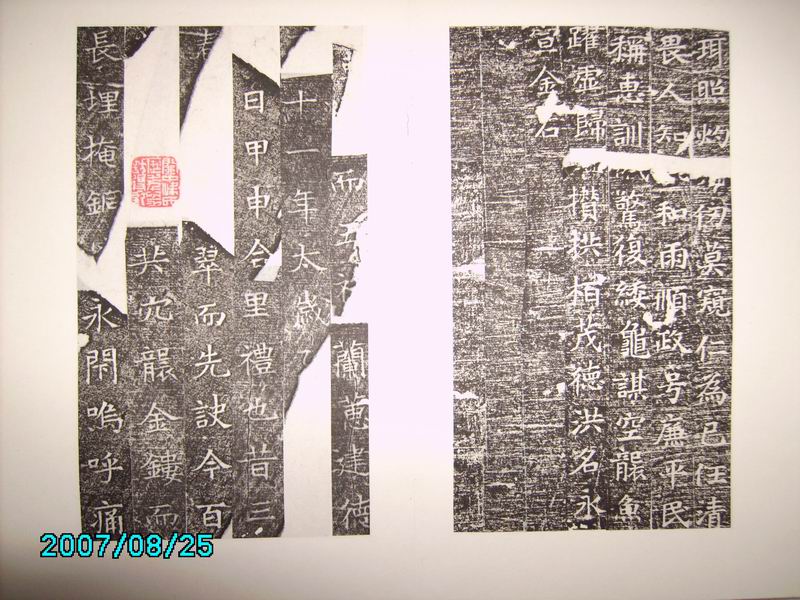 珂照灼 仞莫窺仁為己任清
畏人知 和雨順政号廉平民
稱惠訓 驚復綏龜謀空龑魚
躍虛歸 攢拱栢茂德洪名永
宣金石
蘭蕙建德
而五
十一年太歲
日甲申合里禮也昔三
翠而先訣今百
共穴龑金鏤而
長理掩鉅 永閇嗚呼痛
2007/08/25